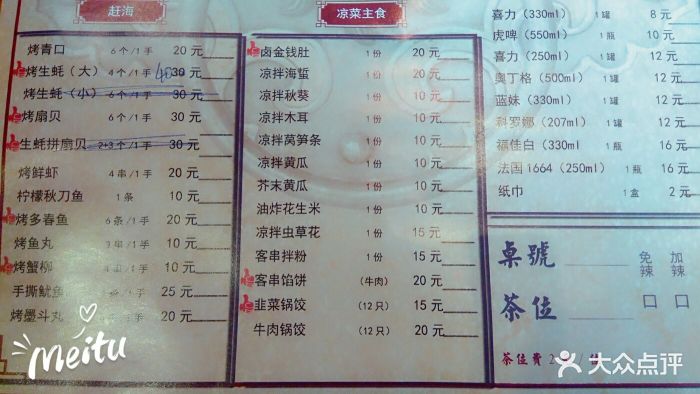 赶海
烤青口 6个/1手 20元
烤生蚝（大） 4个/1手 30元 40
烤生蚝（小） 6个/1手 30元
烤扇贝 6个/1手 30元
生蚝拼扇贝 2+3个/1手 30元
烤鲜虾 4串/1手 20元
柠檬秋刀鱼 1条 10元
烤多春鱼 6条/1手 20元
烤鱼丸 串/1手 10元
烤蟹柳 4串/1手 10元
手撕鱿鱼 25元
烤墨斗丸 /1手 20元
凉菜主食
卤金钱肚 1份 20元
凉拌海蜇 1份 20元
凉拌秋葵 1份 10元
凉拌木耳 1份 10元
凉拌莴笋条 1份 10元
凉拌黄瓜 1份 10元
芥末黄瓜 1份 10元
油炸花生米 1份 10元
凉拌虫草花 1份 15元
客串拌粉 1份 15元
客串馅饼 （牛肉） 20元
韭菜锅饺 （12只） 15元
牛肉锅饺 （12只） 20元
喜力（330ml） 1罐 8元
虎啤（550ml） 1瓶 10元
喜力（250ml） 1罐 12元
奥丁格（500ml） 1罐 12元
蓝妹（330ml） 1罐 12元
科罗娜（207ml） 1罐 12元
福佳白（330ml） 1瓶 16元
法国1664（250ml） 1瓶 16元
纸巾 1盒 2元
桌號 免辣 加辣
茶位 口 口
茶位費2
Meitu
大众点评